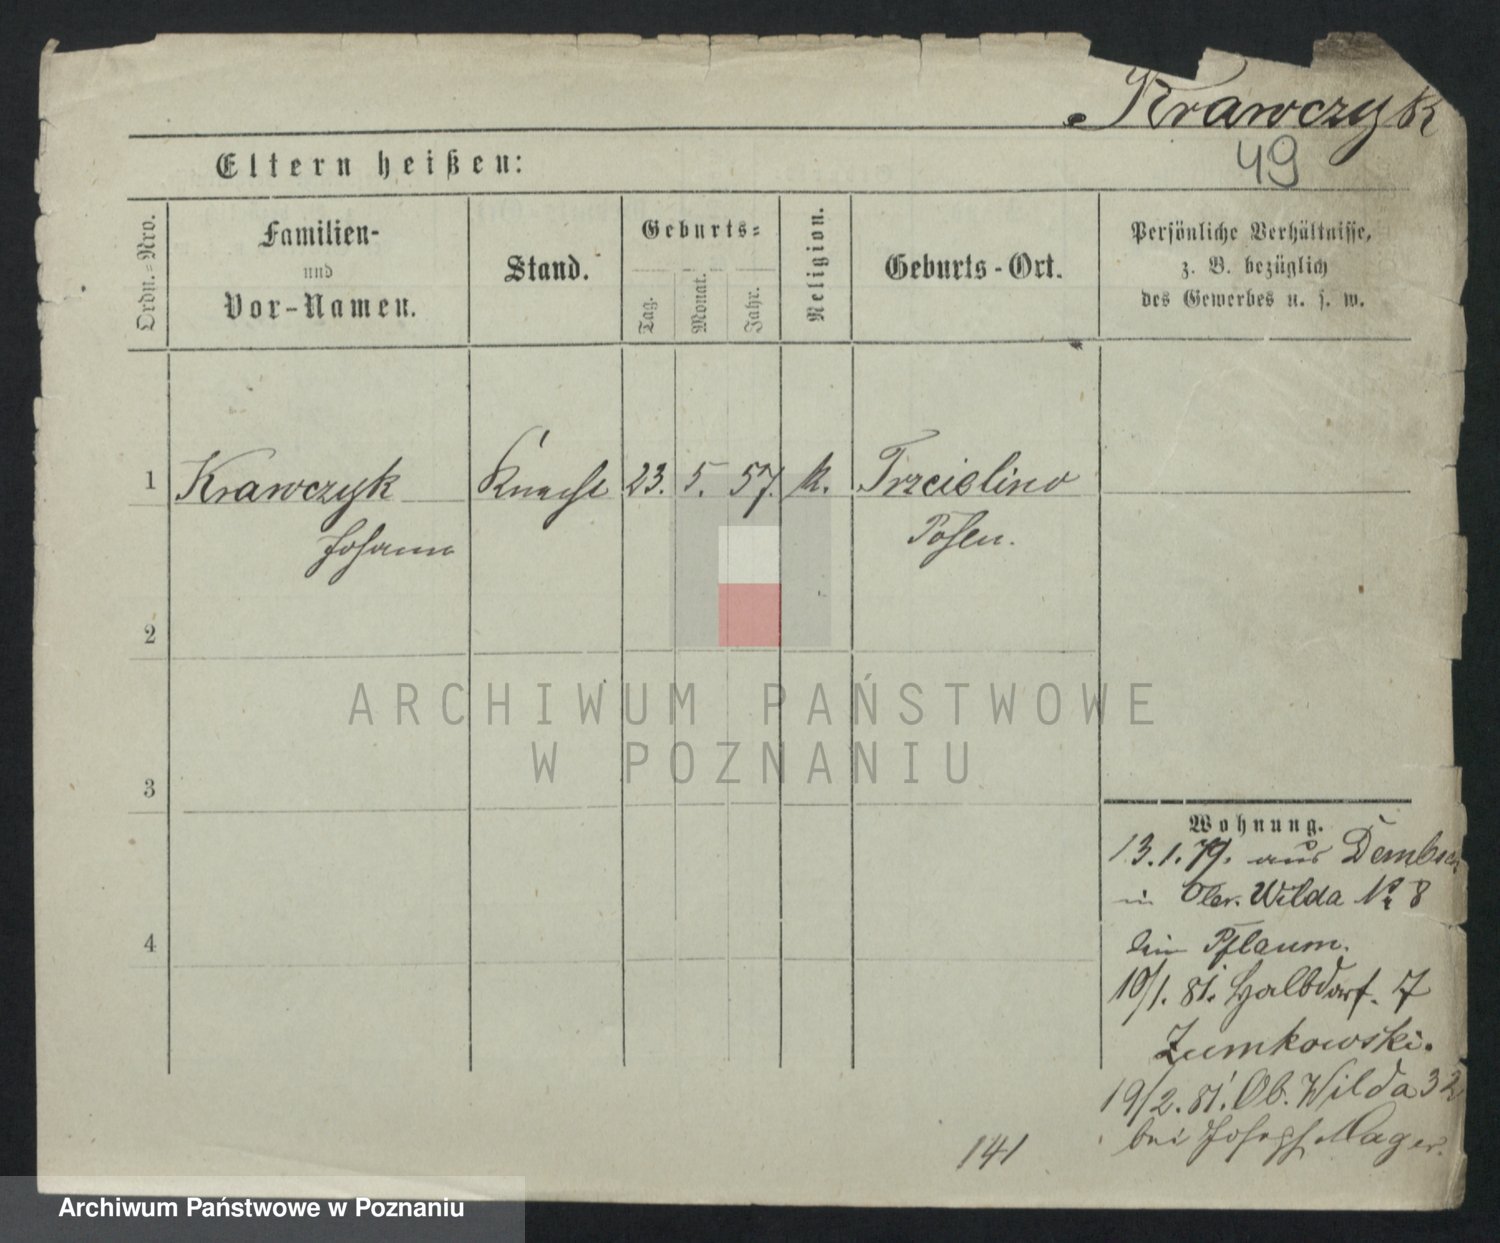 Krawczyk
49
Eltern heißen:
Ordn.=Nro.
Familien-
und
Vor-Namen.
Stand.
Geburts=
Tag.
Monat.
Jahr.
Religion.
Geburts-Ort.
Persönliche Verhältnisse,
z. B. bezüglich
des Gewerbes u. s. w.
1 Krawczyk Knecht 23. 5. 57. k. Trzcielino
Johann Posen.
2
ARCHIWUM PAŃSTWOWE
W POZNANIU
3
Wohnung.
13.1.79. aus Dembsen
in Ober. Wilda No 8
4
beim Pflaum.
10/1. 81. Halbdorf. 7
Zumkowski.
19/2. 81. Ob. Wilda 32
bei Joseph Mager.
141
Archiwum Państwowe w Poznaniu